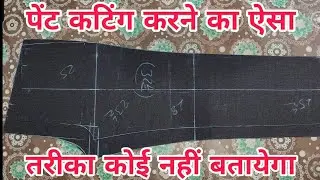 पेंट कटिंग करने का ऐसा
तरीका कोई नहीं बतायेगा